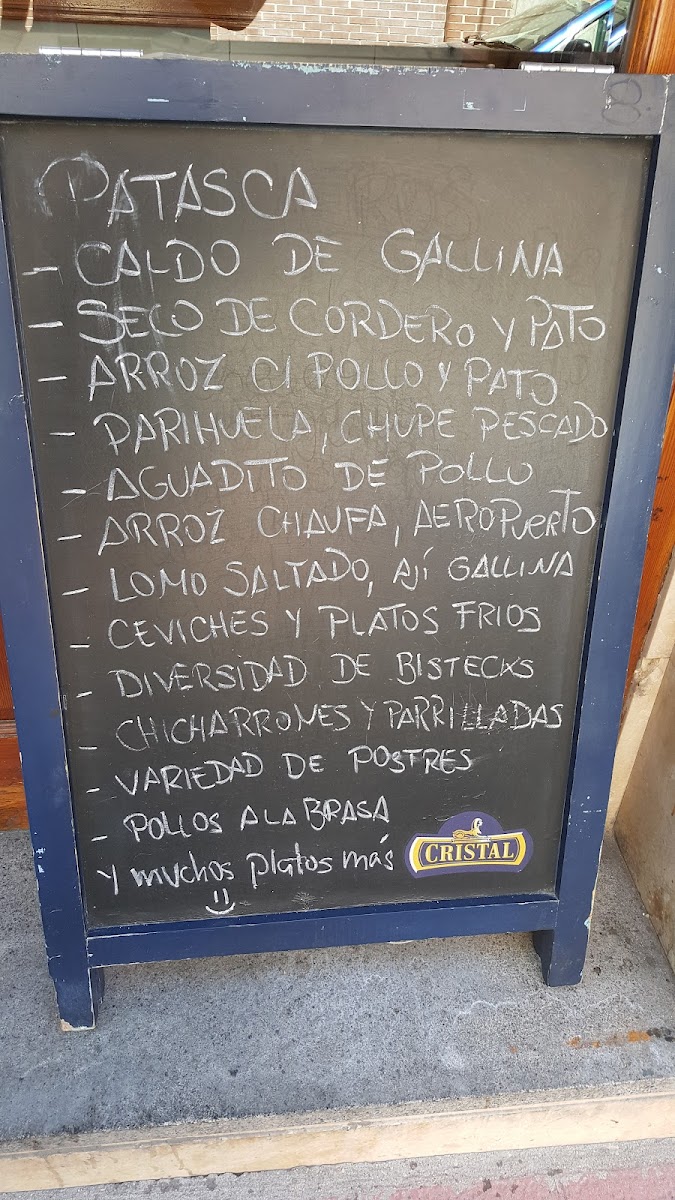 PATASCA
- CALDO DE GALLINA
- SECO DE CORDERO Y PATO
- ARROZ C/ POLLO Y PATO
- PARIHUELA, CHUPE PESCADO
- AGUADITO DE POLLO
- ARROZ CHAUFA, AEROPUERTO
- LOMO SALTADO, AJÍ GALLINA
- CEVICHES Y PLATOS FRIOS
- DIVERSIDAD DE BISTECKS
- CHICHARRONES Y PARRILLADAS
- VARIEDAD DE POSTRES
- POLLOS A LA BRASA
Y muchos platos más
CRISTAL